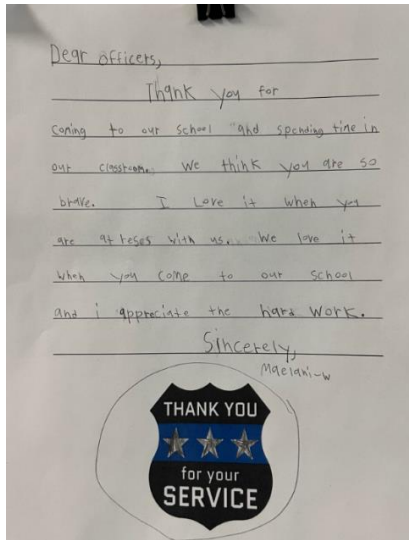 Dear officers,
Thank you for
coming to our school and spending time in
our classroom. We think you are so
brave. I Love it when you
are at reses with us. We love it
when you come to our school
and i appreciate the hard work.
Sincerely,
Maelani-w
THANK YOU
for your
SERVICE